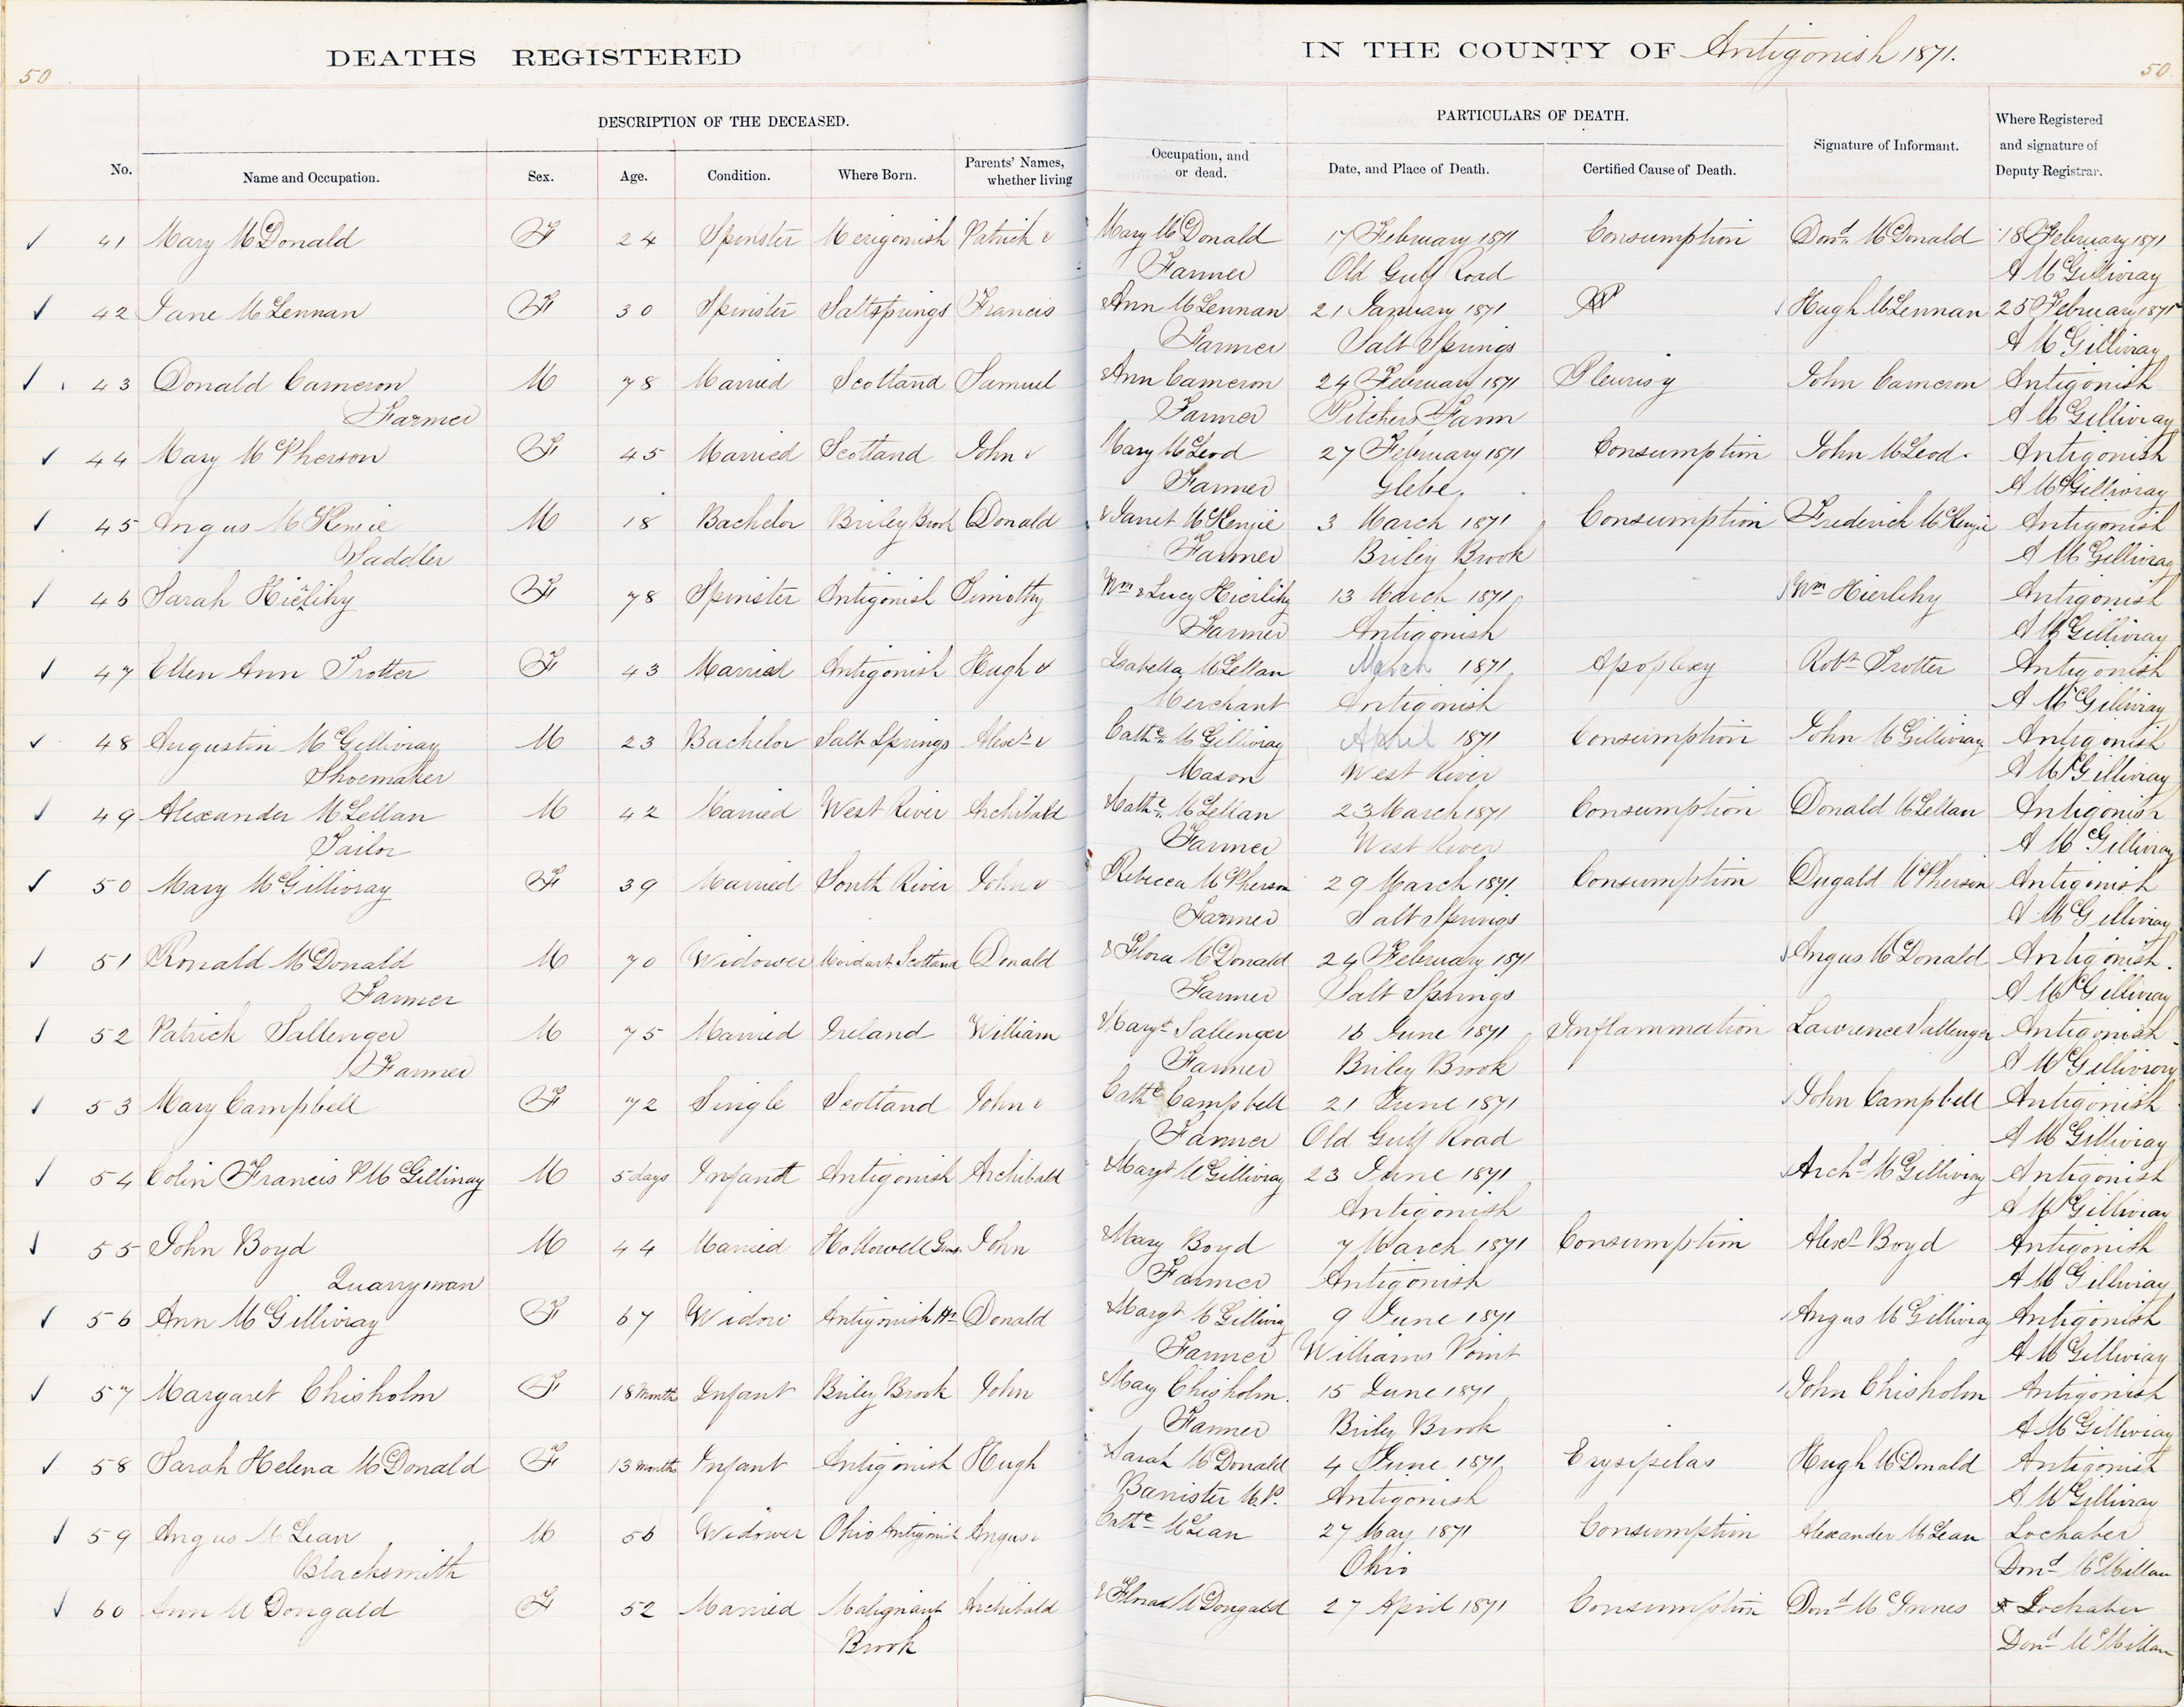 DEATHS REGISTERED IN THE COUNTY OF Antigonish 1871.
50 50
DESCRIPTION OF THE DECEASED. PARTICULARS OF DEATH.
No. Name and Occupation. Sex. Age. Condition. Where Born. Parents' Names, whether living Occupation, and or dead. Date, and Place of Death. Certified Cause of Death. Signature of Informant. Where Registered and signature of Deputy Registrar.
41 Mary McDonald F 24 Spinster Merigonish Patrick & Mary McDonald 17 February 1871 Consumption Dond. McDonald 18 February 1871
Farmer Old Gulf Road A McGillivray
42 Jane McLennan F 30 Spinster Saltsprings Francis & Ann McLennan 21 January 1871 Hugh McLennan 25 February 1871
Farmer Salt Springs A McGillivray
43 Donald Cameron M 78 Married Scotland Samuel & Ann Cameron 24 February 1871 Pleurisy John Cameron Antigonish
Farmer Farmer Pitchers Farm A McGillivray
44 Mary McPherson F 45 Married Scotland John & Mary McLeod 27 February 1871 Consumption John McLeod. Antigonish
Farmer Glebe. A McGillivray
45 Angus McKenzie M 18 Bachelor Briley Brook Donald & Janet McKenzie 3 March 1871 Consumption Frederick McKenzie Antigonish
Saddler Farmer Briley Brook A McGillivray
46 Sarah Hierlihy F 78 Spinster Antigonish Timothy Wm & Lucy Hierlihy 13 March 1871 Wm Hierlihy Antigonish
Farmer Antigonish A McGillivray
47 Ellen Ann Trotter F 43 Married Antigonish Hugh & Isabella McLellan March 1871 Apoplexy Robt Trotter Antigonish
Merchant Antigonish A McGillivray
48 Augustin McGillivray M 23 Bachelor Salt Springs Alexr & Cathe. McGillivray April 1871 Consumption John McGillivray Antigonish
Shoemaker Mason West River A McGillivray
49 Alexander McLellan M 42 Married West River Archibald & Cathe. McLellan 23 March 1871 Consumption Donald McLellan Antigonish
Tailor Farmer West River A McGillivray
50 Mary McGillivray F 39 Married South River John & Rebecca McPherson 29 March 1871. Consumption Dugald McPherson Antigonish
Farmer Salt Springs A McGillivray
51 Ronald McDonald M 70 Widower Moidart Scotland Donald & Flora McDonald 24 February 1871 Angus McDonald Antigonish.
Farmer Farmer Salt Springs A McGillivray
52 Patrick Sallenger M 75 Married Ireland William & Margt Sallenger 16 June 1871 Inflammation Lawrence Sallenger Antigonish
Farmer Farmer Briley Brook A McGillivray
53 Mary Campbell F 72 Single Scotland John & Cathe Campbell 21 June 1871 John Campbell Antigonish
Farmer Old Gulf Road A McGillivray
54 Colin Francis P McGillivray M 5 days Infant Antigonish Archibald & Margt McGillivray 23 June 1871 Archd McGillivray Antigonish
Antigonish A McGillivray
55 John Boyd M 44 Married Hollowell John & Mary Boyd 7 March 1871 Consumption Alexr Boyd Antigonish
Quarryman Farmer Antigonish A McGillivray
56 Ann McGillivray F 67 Widow Antigonish Hr Donald & Margt McGillivray 9 June 1871 Angus McGillivray Antigonish
Farmer Williams Point A McGillivray
57 Margaret Chisholm F 18 Months Infant Briley Brook John & Mary Chisholm. 15 June 1871 John Chisholm Antigonish
Farmer Briley Brook A McGillivray
58 Sarah Helena McDonald F 13 Months Infant Antigonish Hugh & Sarah McDonald 4 June 1871 Erysipelas Hugh McDonald Antigonish
Barrister M.P. Antigonish A McGillivray
59 Angus McLean M 56 Widower Ohio Antigonish Angus & Cathe McLean 27 May 1871 Consumption Alexander McLean Lochaber
Blacksmith Ohio Dond McMillan
60 Ann McDongald F 52 Married Malignant Archibald & Flora McDongald 27 April 1871 Consumption Dond McInnes Lochaber
Brook Dond McMillan